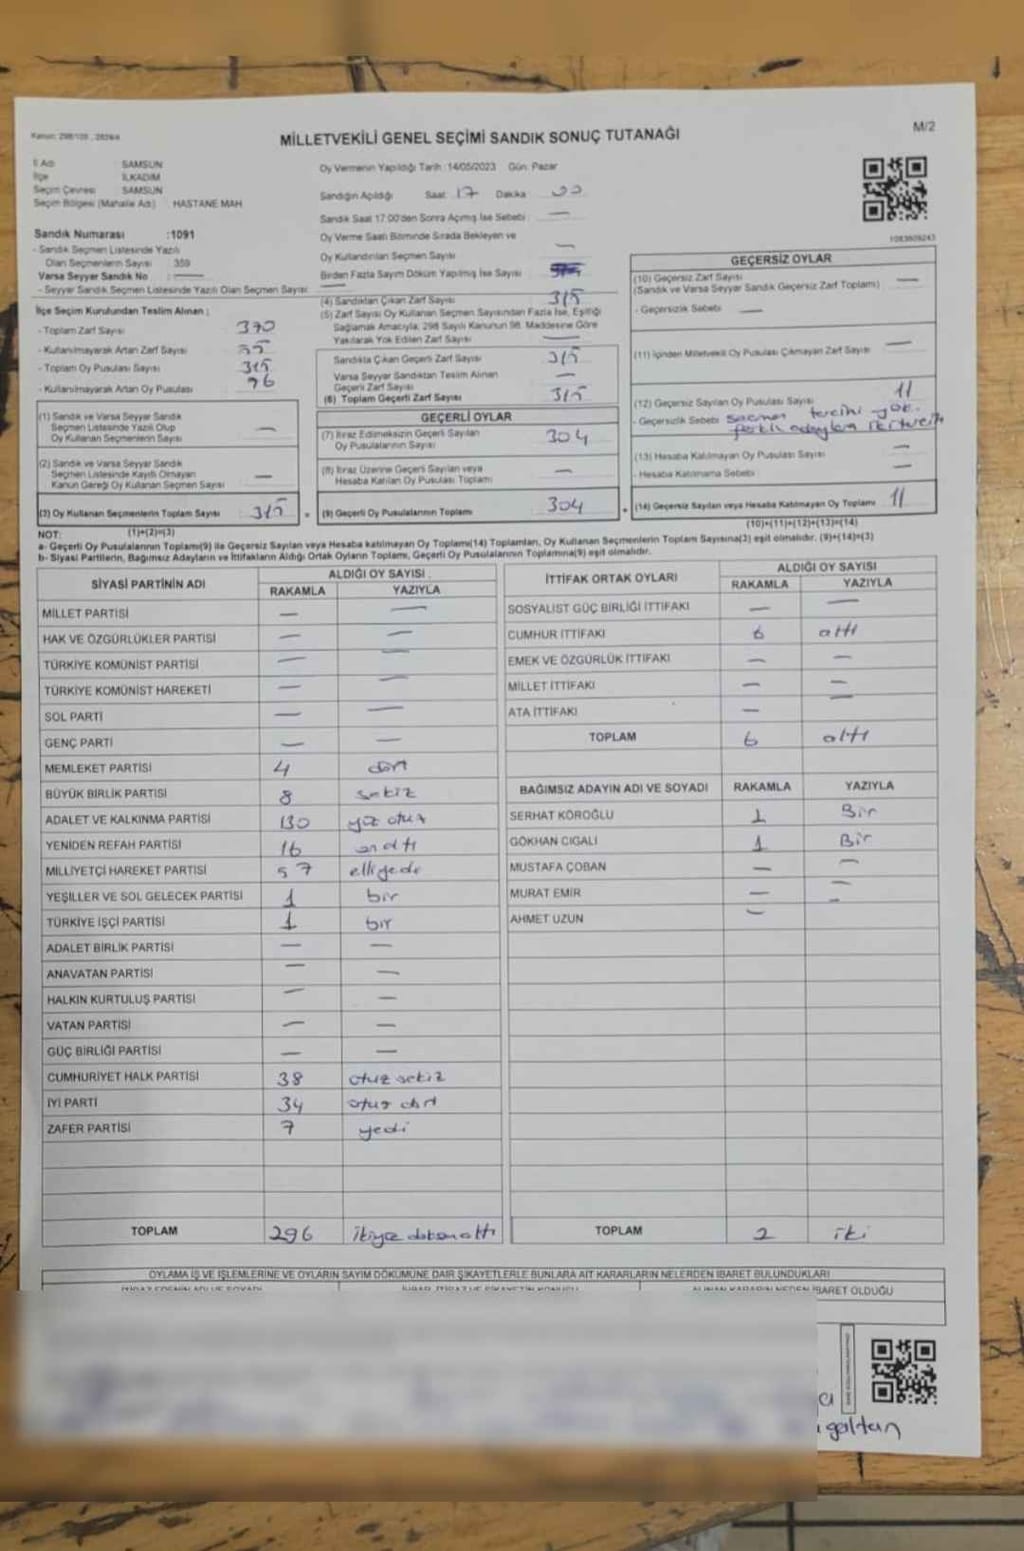 Kanun: 298/105 , 2839/4
MİLLETVEKİLİ GENEL SEÇİMİ SANDIK SONUÇ TUTANAĞI
M/2
İl Adı : SAMSUN
İlçe : İLKADIM
Seçim Çevresi : SAMSUN
Seçim Bölgesi (Mahalle Adı) : HASTANE MAH
Sandık Numarası :1091
- Sandık Seçmen Listesinde Yazılı
Olan Seçmenlerin Sayısı : 359
Varsa Seyyar Sandık No : —
- Seyyar Sandık Seçmen Listesinde Yazılı Olan Seçmen Sayısı: —
İlçe Seçim Kurulundan Teslim Alınan ;
- Toplam Zarf Sayısı 370
- Kullanılmayarak Artan Zarf Sayısı 55
- Toplam Oy Pusulası Sayısı
- Kullanılmayarak Artan Oy Pusulası
(1) Sandık ve Varsa Seyyar Sandık
Seçmen Listesinde Yazılı Olup
Oy Kullanan Seçmenlerin Sayısı —
(2) Sandık ve Varsa Seyyar Sandık
Seçmen Listesinde Kayıtlı Olmayan
Kanun Gereği Oy Kullanan Seçmen Sayısı —
(3) Oy Kullanan Seçmenlerin Toplam Sayısı 315
Oy Vermenin Yapıldığı Tarih :14/05/2023 Gün: Pazar
Sandığın Açıldığı Saat: 17 Dakika : 00
Sandık Saat 17:00'den Sonra Açılmış İse Sebebi : —
Oy Verme Saati Bitiminde Sırada Bekleyen ve
Oy Kullandırılan Seçmen Sayısı —
Birden Fazla Sayım Döküm Yapılmış İse Sayısı
(4) Sandıktan Çıkan Zarf Sayısı 315
(5) Zarf Sayısı Oy Kullanan Seçmen Sayısından Fazla İse, Eşitliği
Sağlamak Amacıyla, 298 Sayılı Kanunun 98. Maddesine Göre
Yakılarak Yok Edilen Zarf Sayısı —
Sandıkta Çıkan Geçerli Zarf Sayısı 315
Varsa Seyyar Sandıktan Teslim Alınan
Geçerli Zarf Sayısı —
(6) Toplam Geçerli Zarf Sayısı 315
GEÇERLİ OYLAR
(7) İtiraz Edilmeksizin Geçerli Sayılan
Oy Pusulalarının Sayısı 304
(8) İtiraz Üzerine Geçerli Sayılan veya
Hesaba Katılan Oy Pusulası Toplamı —
(9) Geçerli Oy Pusulalarının Toplamı 304
1083909243
GEÇERSİZ OYLAR
(10) Geçersiz Zarf Sayısı —
(Sandık ve Varsa Seyyar Sandık Geçersiz Zarf Toplamı)
- Geçersizlik Sebebi —
(11) İçinden Milletvekili Oy Pusulası Çıkmayan Zarf Sayısı —
(12) Geçersiz Sayılan Oy Pusulası Sayısı 11
- Geçersizlik Sebebi seçmen tercihi yok.
farklı adaylara
(13) Hesaba Katılmayan Oy Pusulası Sayısı —
- Hesaba Katılmama Sebebi —
(14) Geçersiz Sayılan veya Hesaba Katılmayan Oy Toplamı 11
NOT: (1)+(2)=(3) (10)+(11)+(12)+(13)=(14)
a- Geçerli Oy Pusulalarının Toplamı(9) ile Geçersiz Sayılan veya Hesaba katılmayan Oy Toplamı(14) Toplamları, Oy Kullanan Seçmenlerin Toplam Sayısına(3) eşit olmalıdır. (9)+(14)=(3)
b- Siyasi Partilerin, Bağımsız Adayların ve İttifakların Aldığı Ortak Oyların Toplamı, Geçerli Oy Pusulalarının Toplamına(9) eşit olmalıdır.
SİYASİ PARTİNİN ADI ALDIĞI OY SAYISI
RAKAMLA YAZIYLA
MİLLET PARTİSİ — —
HAK VE ÖZGÜRLÜKLER PARTİSİ — —
TÜRKİYE KOMÜNİST PARTİSİ — —
TÜRKİYE KOMÜNİST HAREKETİ — —
SOL PARTİ — —
GENÇ PARTİ — —
MEMLEKET PARTİSİ 4 dört
BÜYÜK BİRLİK PARTİSİ 8 sekiz
ADALET VE KALKINMA PARTİSİ 130 yüz otuz
YENİDEN REFAH PARTİSİ 16 on altı
MİLLİYETÇİ HAREKET PARTİSİ 57 elliyedi
YEŞİLLER VE SOL GELECEK PARTİSİ 1 bir
TÜRKİYE İŞÇİ PARTİSİ 1 bir
ADALET BİRLİK PARTİSİ — —
ANAVATAN PARTİSİ — —
HALKIN KURTULUŞ PARTİSİ — —
VATAN PARTİSİ — —
GÜÇ BİRLİĞİ PARTİSİ — —
CUMHURİYET HALK PARTİSİ 38 otuz sekiz
İYİ PARTİ 34 otuz dört
ZAFER PARTİSİ 7 yedi
TOPLAM 296 ikiyüz doksan altı
İTTİFAK ORTAK OYLARI ALDIĞI OY SAYISI
RAKAMLA YAZIYLA
SOSYALIST GÜÇ BİRLİĞİ İTTİFAKI — —
CUMHUR İTTİFAKI 6 altı
EMEK VE ÖZGÜRLÜK İTTİFAKI — —
MİLLET İTTİFAKI — —
ATA İTTİFAKI — —
TOPLAM 6 altı
BAĞIMSIZ ADAYIN ADI VE SOYADI RAKAMLA YAZIYLA
SERHAT KÖROĞLU 1 Bir
GÖKHAN CIGALI 1 Bir
MUSTAFA ÇOBAN — —
MURAT EMİR — —
AHMET UZUN — —
TOPLAM 2 iki
OYLAMA İŞ VE İŞLEMLERİNE VE OYLARIN SAYIM DÖKÜMÜNE DAİR ŞİKAYETLERLE BUNLARA AİT KARARLARIN NELERDEN İBARET BULUNDUKLARI
İTİRAZ EDENİN ADI VE SOYADI İHBAR, İTİRAZ VE ŞİKAYETİN KONUSU ALINAN KARARIN NEDEN İBARET OLDUĞU